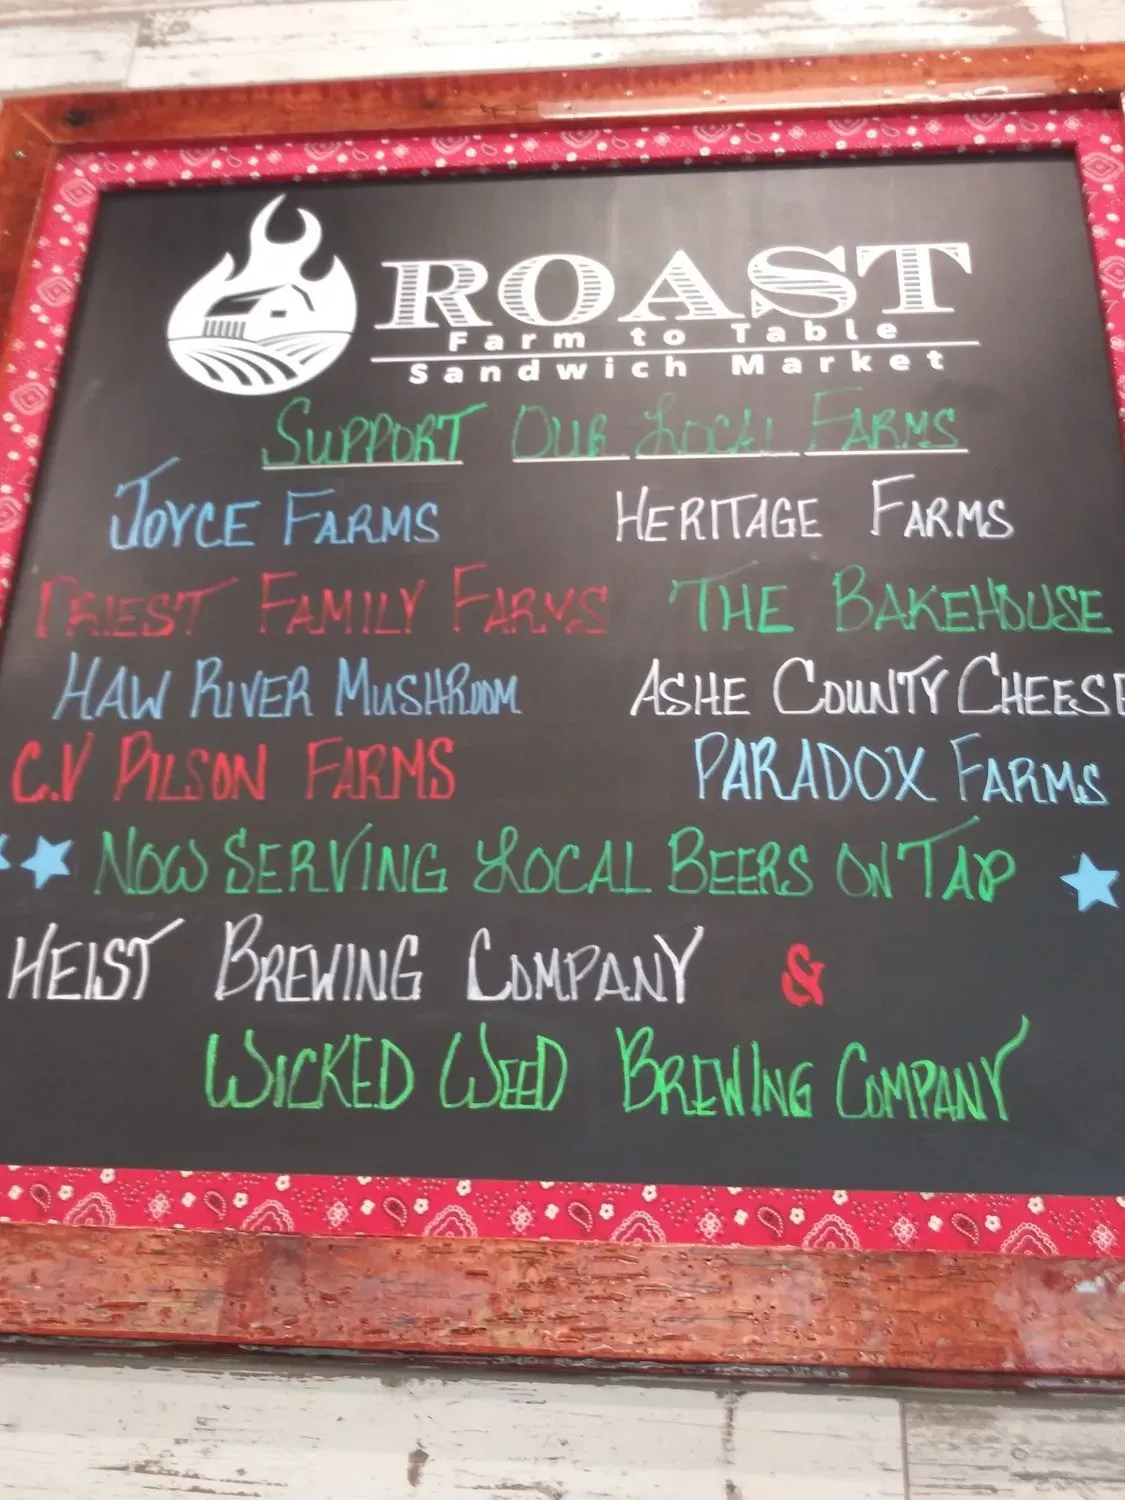 ROAST
Farm to Table
Sandwich Market
SUPPORT OUR LOCAL FARMS
JOYCE FARMS HERITAGE FARMS
PRIEST FAMILY FARMS THE BAKEHOUSE
HAW RIVER MUSHROOM ASHE COUNTY CHEESE
C.V PILSON FARMS PARADOX FARMS
NOW SERVING LOCAL BEERS ON TAP
HEIST BREWING COMPANY &
WICKED WEED BREWING COMPANY